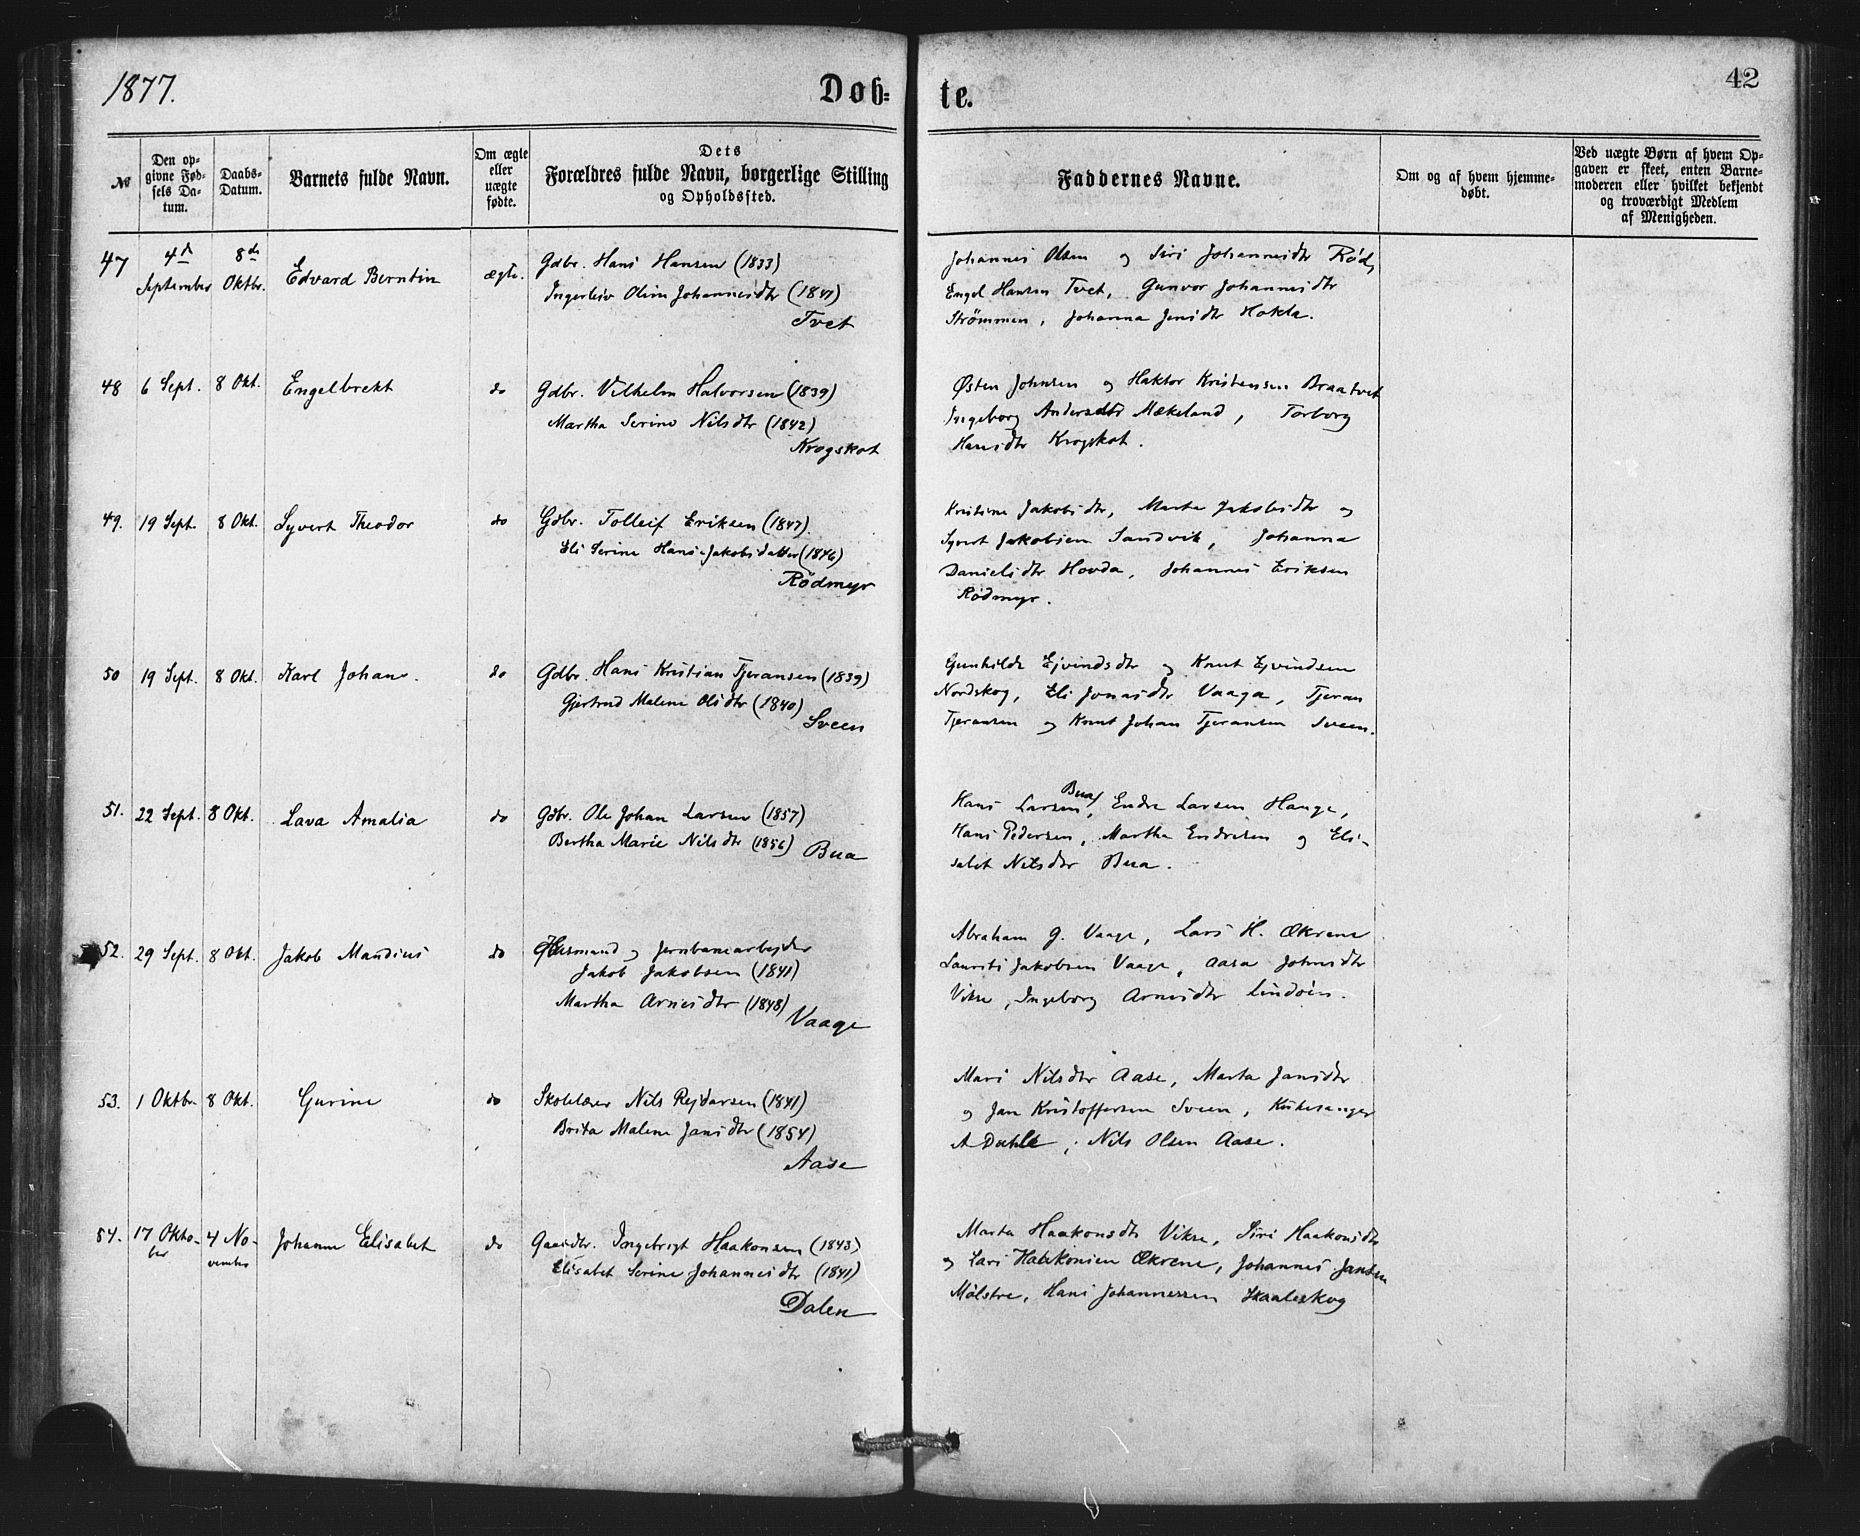 1877.
Døb-
te.
42
No
Den op-
givne Fød-
sels Da-
tum.
Daabs-
Datum.
Barnets fulde Navn.
Om ægte
eller
uægte
fødte.
Dets
Forældres fulde Navn, borgerlige Stilling
og Opholdssted.
Faddernes Navne.
Om og af hvem hjemme-
døbt.
Ved uægte Børn af hvem Op-
gaven er skeet, enten Barne-
moderen eller hvilket bekjendt
og troværdigt Medlem
af Menigheden.
47
4de
September
8de
Oktbr.
Edvard Berntin
ægte.
Gdbr. Hans Hansen (1833)
Ingerleiv Oline Johannesdtr (1841)
Tvet
Johannes Olsen og Siri Johannesdtr Rød,
Engel Hansen Tvet, Gunvor Johannesdtr
Strømmen, Johanna Jensdtr Hokla.
48
6 Sept.
8 Okt.
Engelbrekt
do
Gdbr. Vilhelm Halvorsen (1839)
Martha Serine Nilsdtr (1842)
Krogskot
Østen Johnsen og Haktor Kristensen Braatvet
Ingeborg Andersdtr Mækeland, Torborg
Hansdtr Krogskot.
49.
19 Sept.
8 Okt.
Syvert Theodor
do
Gdbr. Tolleif Eriksen (1847).
Eli Serine Hans-Jakobsdatter (1846)
Rødmyr
Kristine Jakobsdtr, Marta Jakobsdtr og
Syvert Jakobsen Sandvik, Johanna
Danielsdtr Hovda, Johannes Eriksen
Rødmyr.
50
19 Sept.
8 Okt.
Karl Johan.
do
Gdbr. Hans Kristian Tjeransen (1839)
Gjertrud Malene Olsdtr (1840)
Sveen
Gunhilde Ejvindsdtr og Knut Ejvindsen
Nordskog, Eli Jonasdtr Vaaga, Tjeran
Tjeransen og Knut Johan Tjeransen Sveen.
51.
22 Sept.
8 Okt.
Lava Amalia
do
Gdbr. Ole Johan Larsen (1857)
Bertha Marie Nilsdtr (1856)
Bua
Hans Larsen Bua, Endre Larsen Hauge,
Hans Pedersen, Martha Endresen og Eli-
sabet Nilsdtr Bua.
52.
29 Sept.
8 Okt.
Jakob Mandius
do
Husmand og Jernbanearbejder
Jakob Jakobsen (1841)
Martha Arnesdtr (1848)
Vaage
Abraham G. Vaage, Lars H. Økrene
Laurits Jakobsen Vaage, Aasa Johnsdtr
Vikse, Ingeborg Arnesdtr Lindøen.
53.
1 Oktbr.
8 Okt.
Gurine
do
Skolelærer Nils Rejdarsen (1841)
Brita Malene Jansdtr (1854)
Aase
Mari Nilsdtr Aase, Marta Jansdtr
og Jan Kristoffersen Sveen, Kirkesanger
A Dahle, Nils Olsen Aase.
54.
17 Okto-
ber
4 No-
vember
Johanne Elisabet
do
Gaardbr. Ingebrigt Haakonsen (1843)
Elisabet Serine Johannesdtr (1841)
Dalen
Marta Haakonsdtr Vikse, Siri Haakonsdtr
og Lars Haakonsen Økrene, Johannes Jansen
Mølstre, Hans Johannessen Skaaleskog